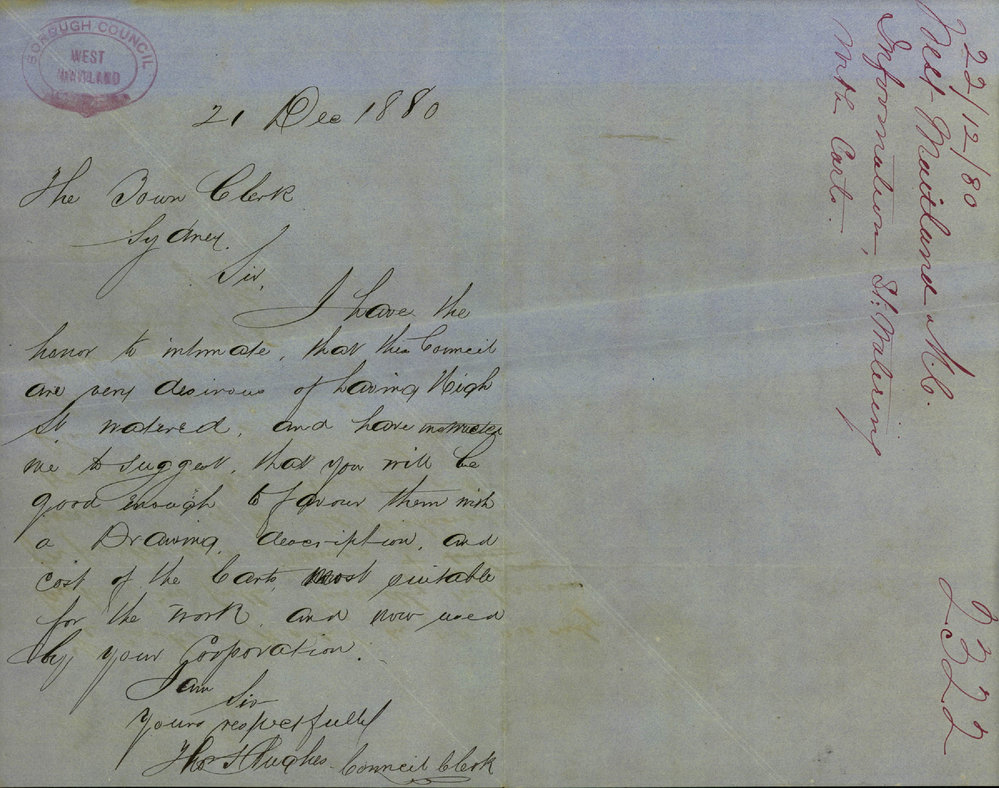 BOROUGH COUNCIL
WEST
MAITLAND
21 Dec 1880
The Town Clerk
Sydney.
Sir,
I have the
honor to intimate, that this Council
are very desirous of having High
St watered, and have instructed
me to suggest, that you will be
good enough to favour them with
a Drawing, description, and
cost of the Carts, most suitable
for the work, and now used
by your Corporation.
I am
Sir
Yours respectfully
Thos Hughes
Council Clerk
22/12/80
West Maitland M.C.
Information, St. Watering
Carts.
2322